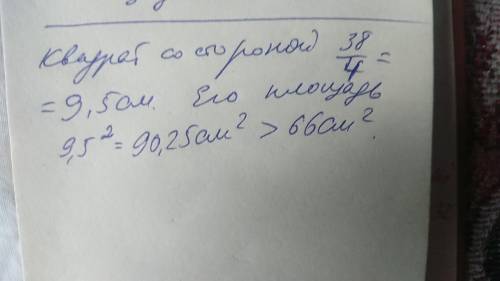 Квадрат со стороной 38/4 =
= 9,5 см. Его площадь
9,5² = 90,25 см² > 66 см².